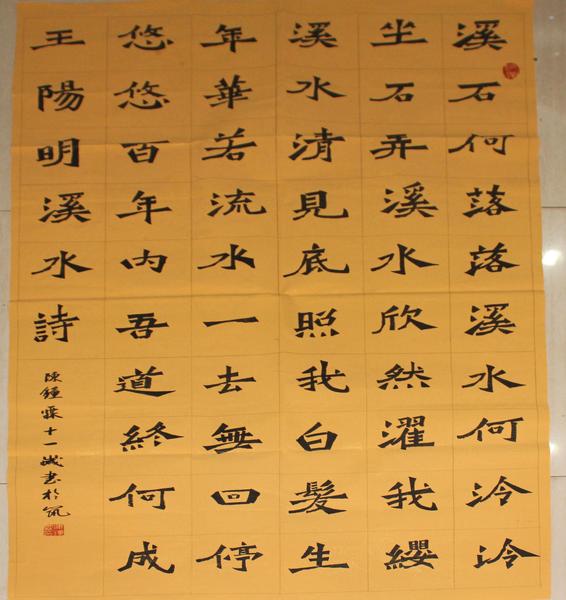 溪石何落落溪水何泠泠
坐石弄溪水欣然濯我纓
溪水清見底照我白髮生
年華若流水一去無回停
悠悠百年內吾道終何成
王陽明溪水詩
陳鍾霖十一歲書於筑